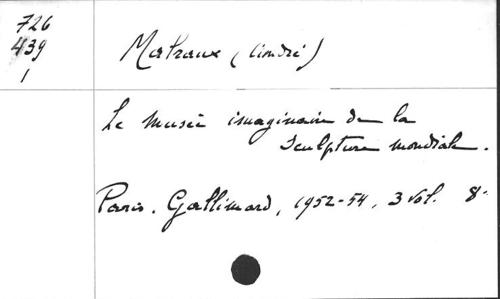 726
439
1
Malraux (André)
Le Musée imaginaire de la
Sculpture mondiale.
Paris. Gallimard, 1952-54, 3 vol. 8°